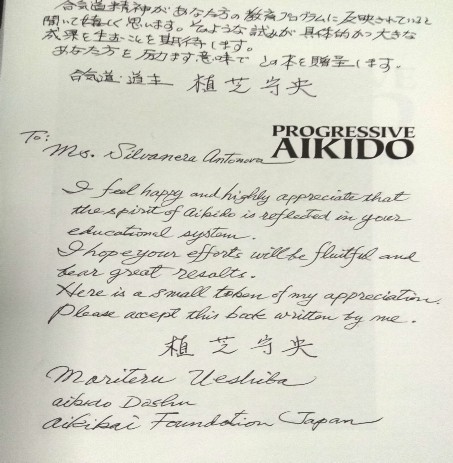 合気道精神があなた方の教育プログラムに反映されていると
聞いて嬉しく思います。そのような試みが具体的かつ大きな
成果を生むことを期待します。
あなた方を励ます意味でこの本を贈呈します。
合気道・道主 植芝守央
PROGRESSIVE
AIKIDO
To:
Ms. Silvanera Antonova
I feel happy and highly appreciate that
the spirit of aikido is reflected in your
educational system.
I hope your efforts will be fluitful and
bear great results.
Here is a small token of my appreciation.
Please accept this book written by me.
植芝守央
Moriteru Ueshiba
aikido Doshu
Aikikai Foundation Japan